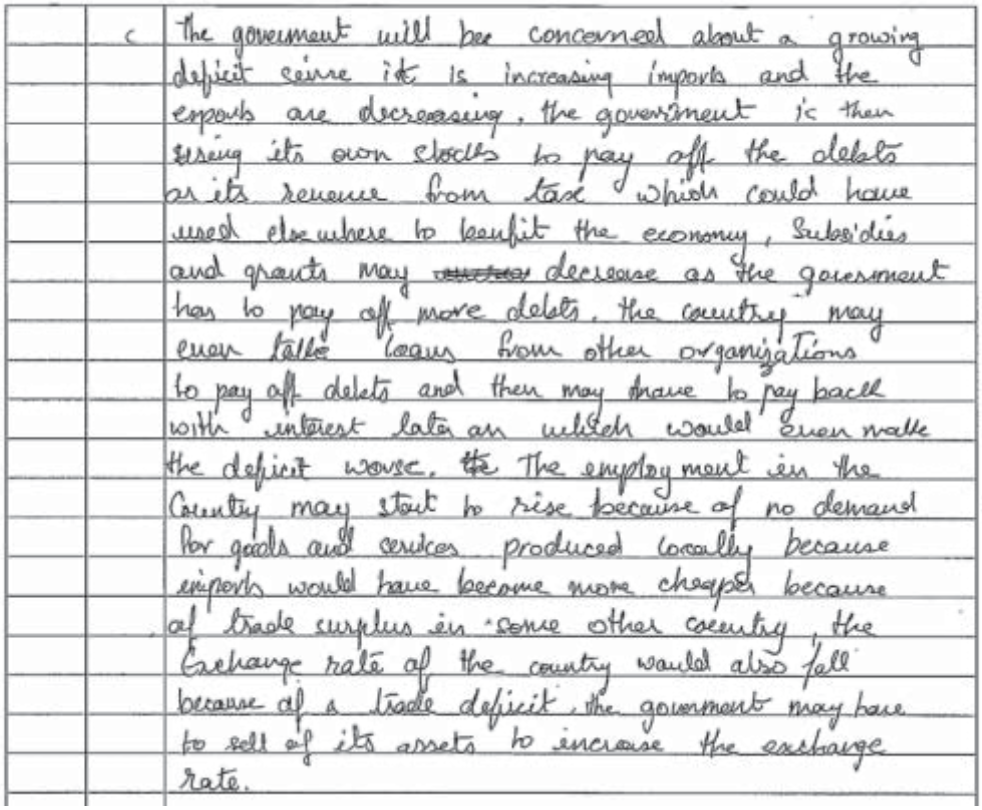 c The government will bee concerned about a growing
deficit ceinre it is increasing imports and the
exports are decreasing, the government is then
using its own stocks to pay off the debts
or its revenue from tax which could have
used elsewhere to benifit the economy, Subsidies
and grants may decrease as the government
has to pay off more debts. the country may
even take loans from other organizations
to pay off debts and then may have to pay back
with interest later an which would even make
the deficit worse. The employment in the
Country may start to rise because of no demand
for goods and services produced locally because
imports would have become more cheaper because
of trade surplus in some other country, the
Exchange rate of the country would also fall
because of a trade deficit, the government may have
to sell of its assets to increase the exchange
rate.